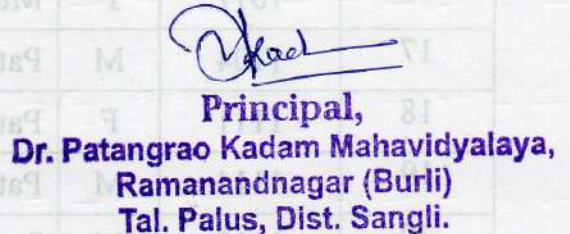 Principal,
Dr. Patangrao Kadam Mahavidyalaya,
Ramanandnagar (Burli)
Tal. Palus, Dist. Sangli.